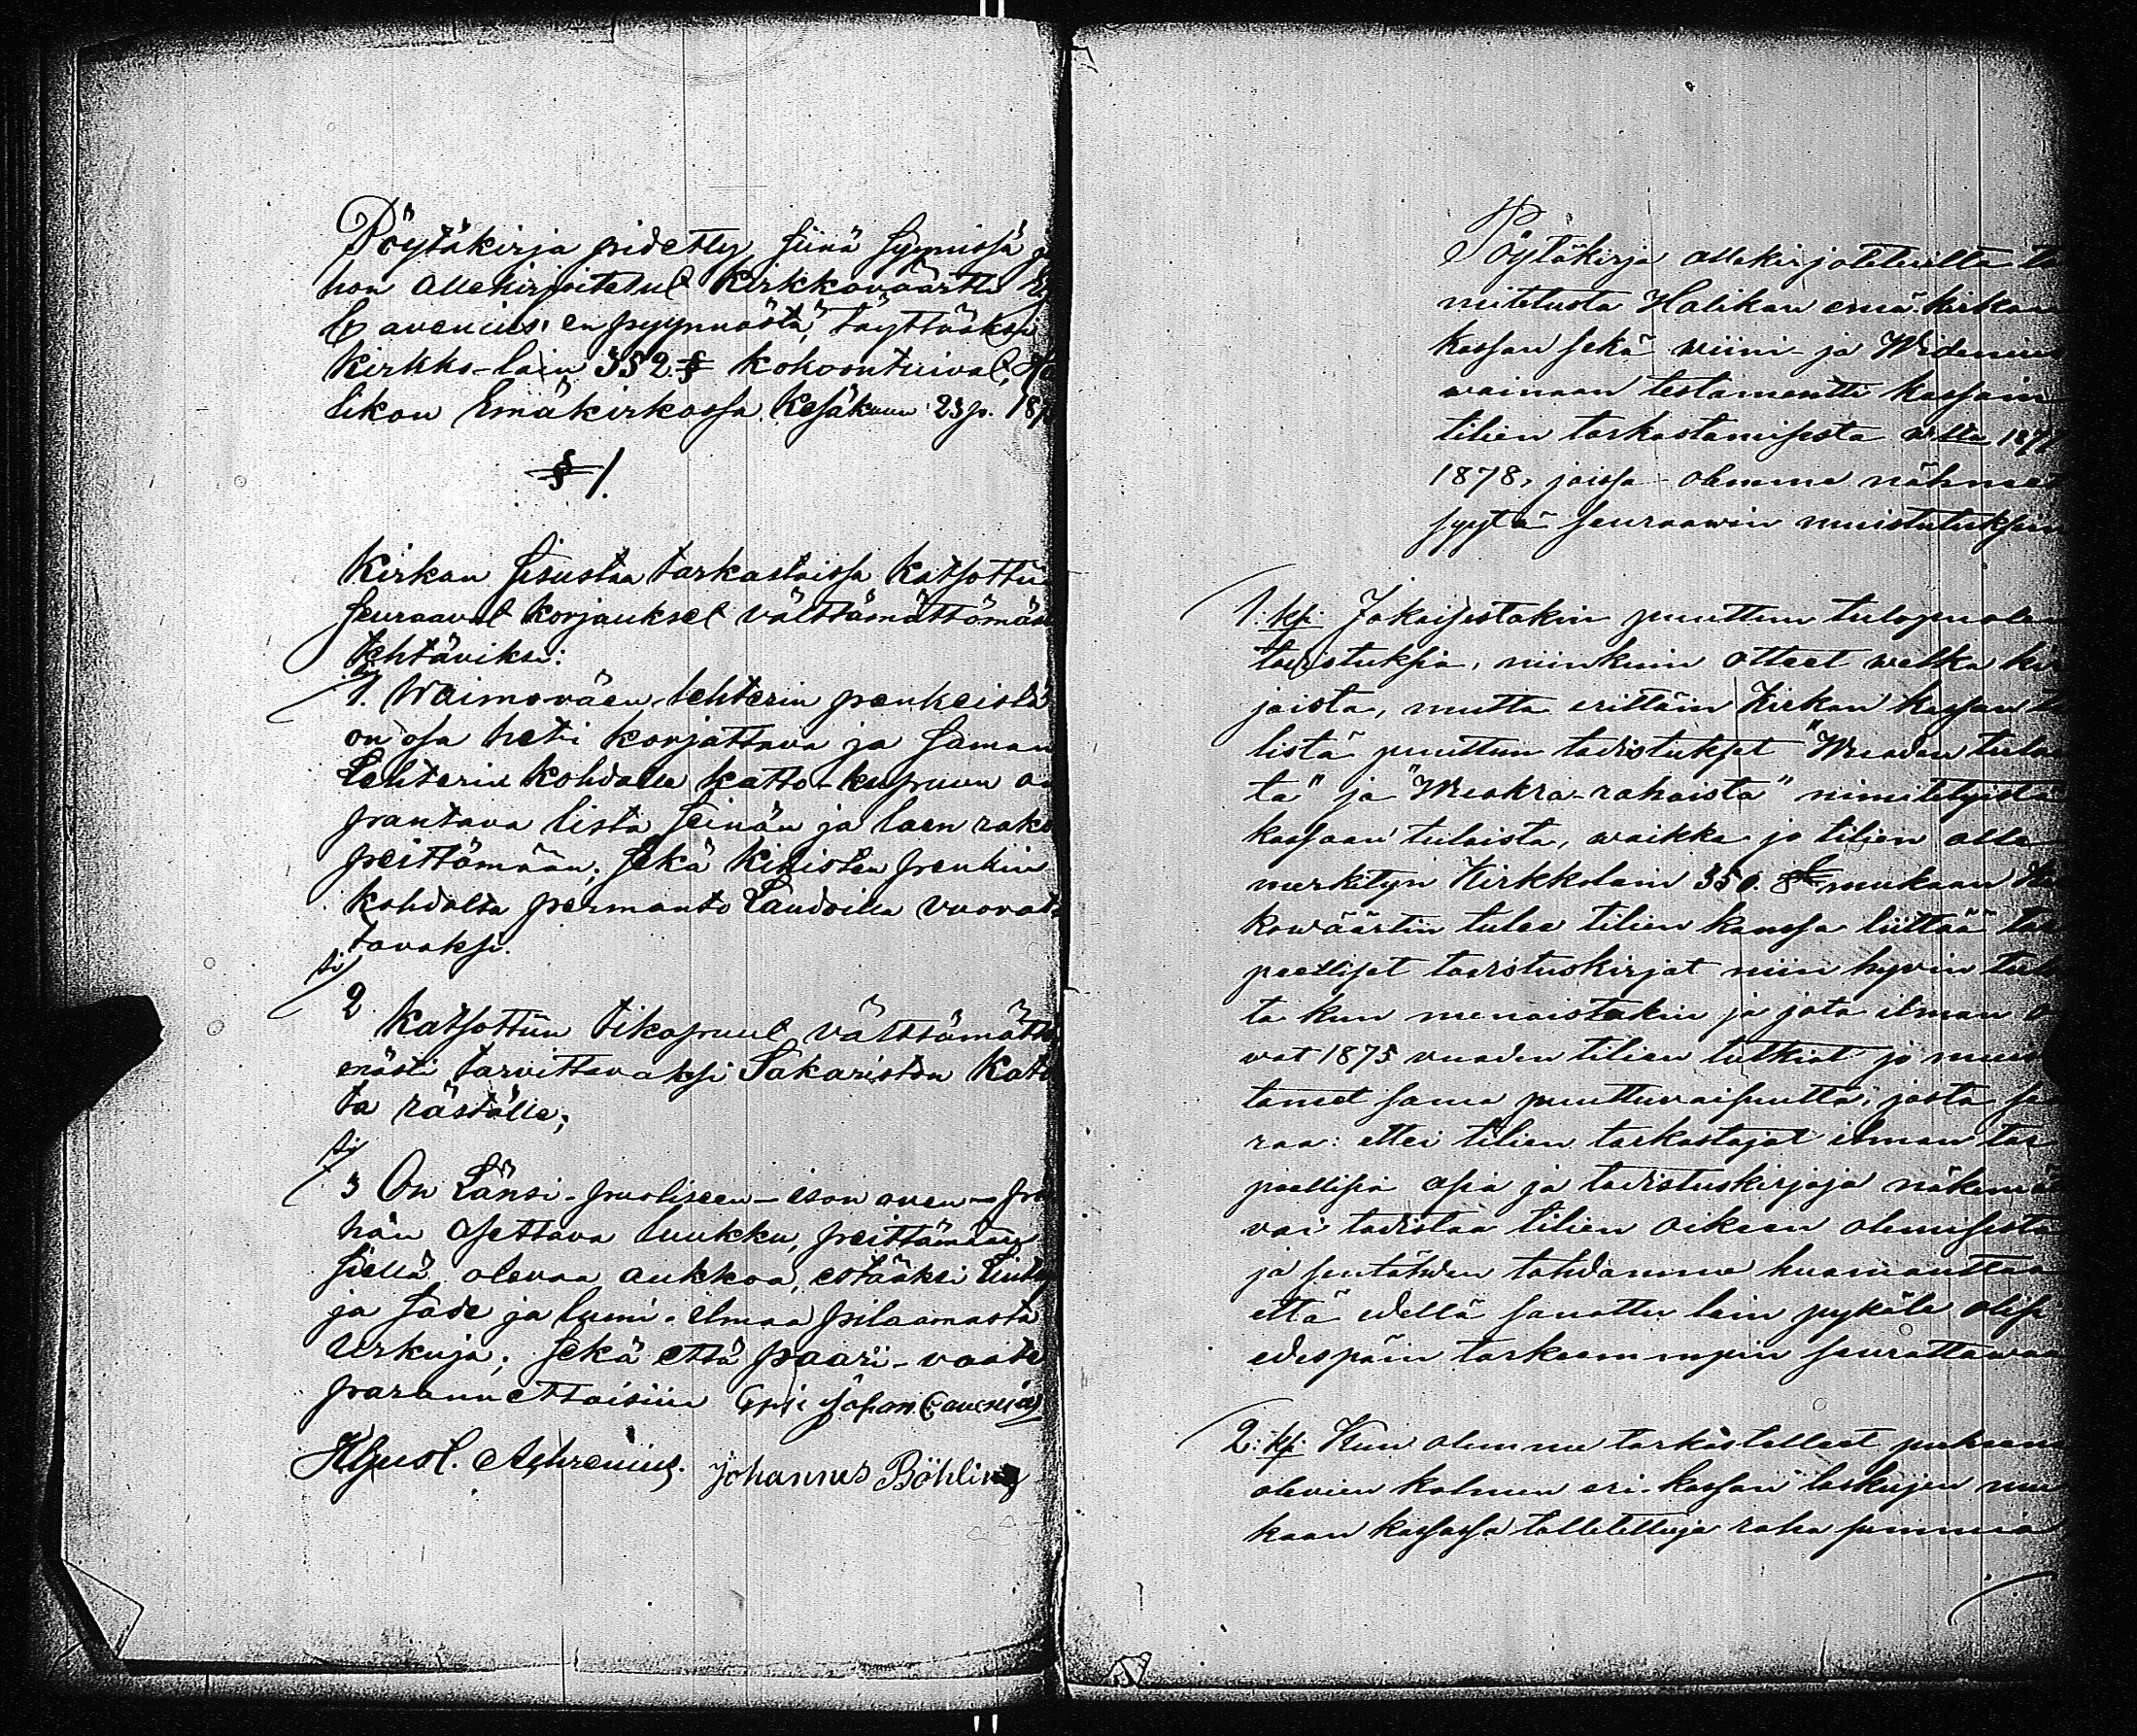 Pöytäkirja pidetty siinä syynissä
hon allekirjoitetut Kirkkovärtti
Cavenius'en pyynnöstä, täyttääksi
Kirkko-lain 352 § kokoontuivat, Ha
likon Emäkirkossa Kesäkuun 23 p. 18
§ 1.
Kirkan sisustaa tarkastaissa katsottii
seuraavat korjaukset välttämättömäs
tehtäviksi:
1. Waimoväen lehterin penkeistä
on osa heti korjattava ja saman
Lehterin kohdalle katto-kupuun on
pantava lista seinän ja laen rako
peittämään; sekä kinisten penkin
kohdalta permanto Laudoilla vuorat
tavaksi.
2 Katsottiin tikapuut välttämättö
mästi tarvittavaksi Sakariston Kato
ta räställe;
3 On Länsi-puoliseen-ison oven-
hän asettava luukku, peittämään
siellä olevaa aukkoa, estääksi Lintu
ja sade ja lumi-ilmaa pilaamasta
Urkuja; sekä että paari-vaate
parannettaisiin Johan Cavenius
K Gust. Achrenius. Johannes Böhling
Pöytäkirja allekirjoteteuilta to
mitetusta Halikan emä-kirkan
kassan sekä wiini- ja Widenius
wainaan testamentti kassain
tilien tarkastamisesta w:lta 1877
1878, joissa olemme nähneet
syytä seuraawin muistutuksiin
1: ks: Jokaisestakin puuttuu tulopuolen
todistuksia, niinkuin otteet welka kir
joista, mutta erittäin Kirkan kassan ti
listä puuttuu todistukset "Wuoden tulois
ta" ja "Wuokra-rahoista" nimitetyistä
kassaan tuloista, waikka jo tilien alle
merkityn Kirkkolain 350. §:n mukaan Kir
kowäärtin tulee tilien kanssa liittää tar
peelliset todistuskirjat niin hyvin tulo
ta kun menoistakin ja jota ilman o
wat 1875 vuoden tilien tutkiat jo muis
taneet sama puuttuvaisuutta; josta seu
raa: ettei tilien tarkastajat ilman tar
peellisia asia ja todistuskirjoja näkemä
voi todistaa tilien oikeen olemisesta
ja sentähden tahdomme huomauttaa
että edellä sanottu lain pykälä olisi
edespäin tarkeemmpin seurattawaa
2: ks: Kun olemme tarkastelleet puheena
olevien kolmen eri-kassan laskujen mu
kaan kassassa talletettuja raha summia